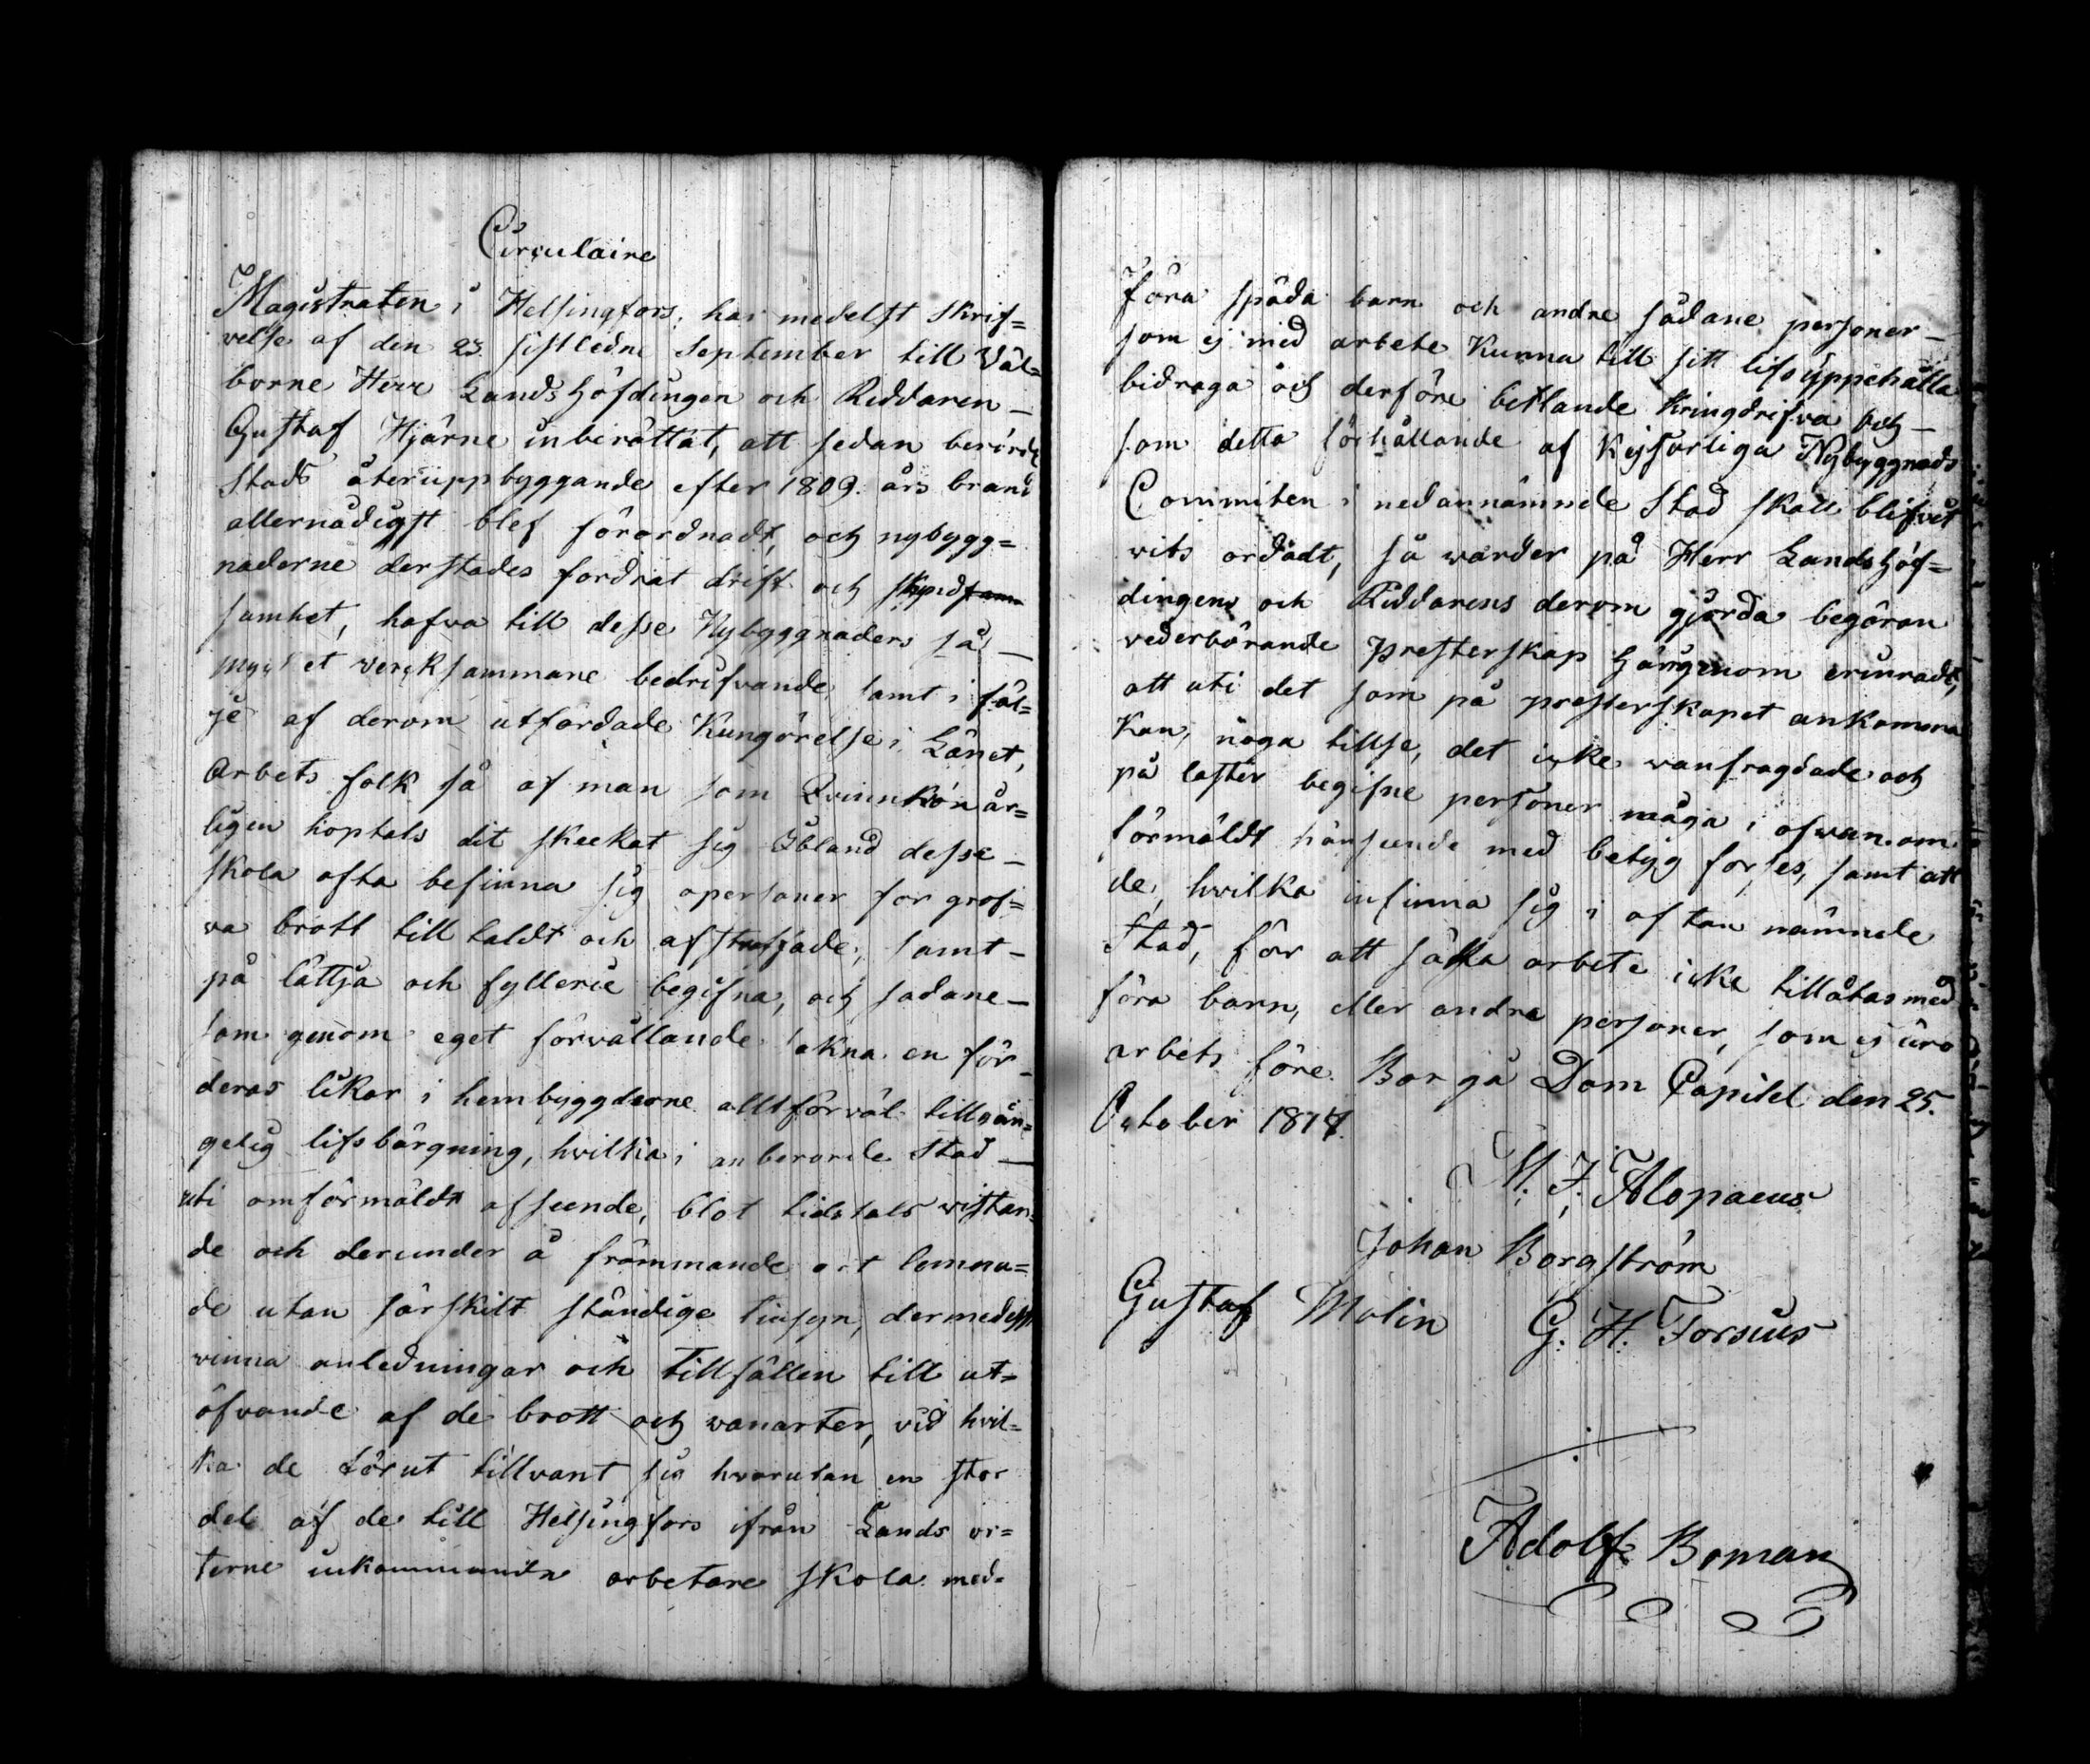 Circulaire
Magistraten i Helsingfors, har medelst Skrif=
velse af den 23. sistledne September till Väl=
borne Herr LandsHöfdingen och Riddaren —
Gustaf Hjärne inberättat, att sedan berörde
Stads återuppbyggande efter 1809. års brand
allernådigst blef förordnadt, och nybygg=
naderne derstades fordrat drift och skynd
samhet, hafva till desse Nybyggnaders så —
mycket verksammare bedrifvande, samt i föl=
je af derom utfärdade Kungörelse i Länet,
Arbets folk så af man som Qvinnkön år=
ligen hoptals dit skeekat sig Ibland desse —
skola ofta befinna sig personer för grof=
va brott till taldt och afstraffade, samt —
på lättja och fyllerie begifna, och sadane —
som genom eget förvållande sakna en för —
deras likar i hembyggderne alltförväl tillgän=
gelig lifsbärgning, hvilka i anberorde Stad —
uti omförmäldt afseende, blot tidstals vistan=
de och derunder å främmande ort lemna=
de utan särskilt ständige tinsyn, dermedelst
vinna anledningar och Tillfällen till ut=
öfvande af de brott och vanarter, vid hvil=
ka de förut tillvant sig hvarutan en stor
del af de till Helsingfors ifrån Lands or=
terne inkommande arbetare skola med=
föra späda barn och andre sådane personer —
som ej med arbete Kunna till sitt lifsuppehälla
bidraga och derföre bettlande kringdrifva och —
som detta förhållande af Kejserliga Nybyggnads
Commiten i nedannämnde Stad skall blifvit
vits ordadt, så warder på Herr Landshöf=
dingens och Riddarens derom gjorda begäran
vederbörande Presterskap härigenom erinradt,
att uti det som på presterskapet ankomma
Kan, noga tillse, det icke vanfragdade och
på laster begifne personer måga i ofvan om
förmäldt hänseende med betyg forses, samt att
de, hvilka infinna sig i oftan nämnde
Stad, för att söka arbete icke tillåtas med
föra barn, eller andra personer, som ej äro
arbets före. Borgå Dom Capitel den 25.
October 1817.
M. J. Alopaeus
Johan Borgström
Gustaf Molin G. H. Forsius
Adolf Boman